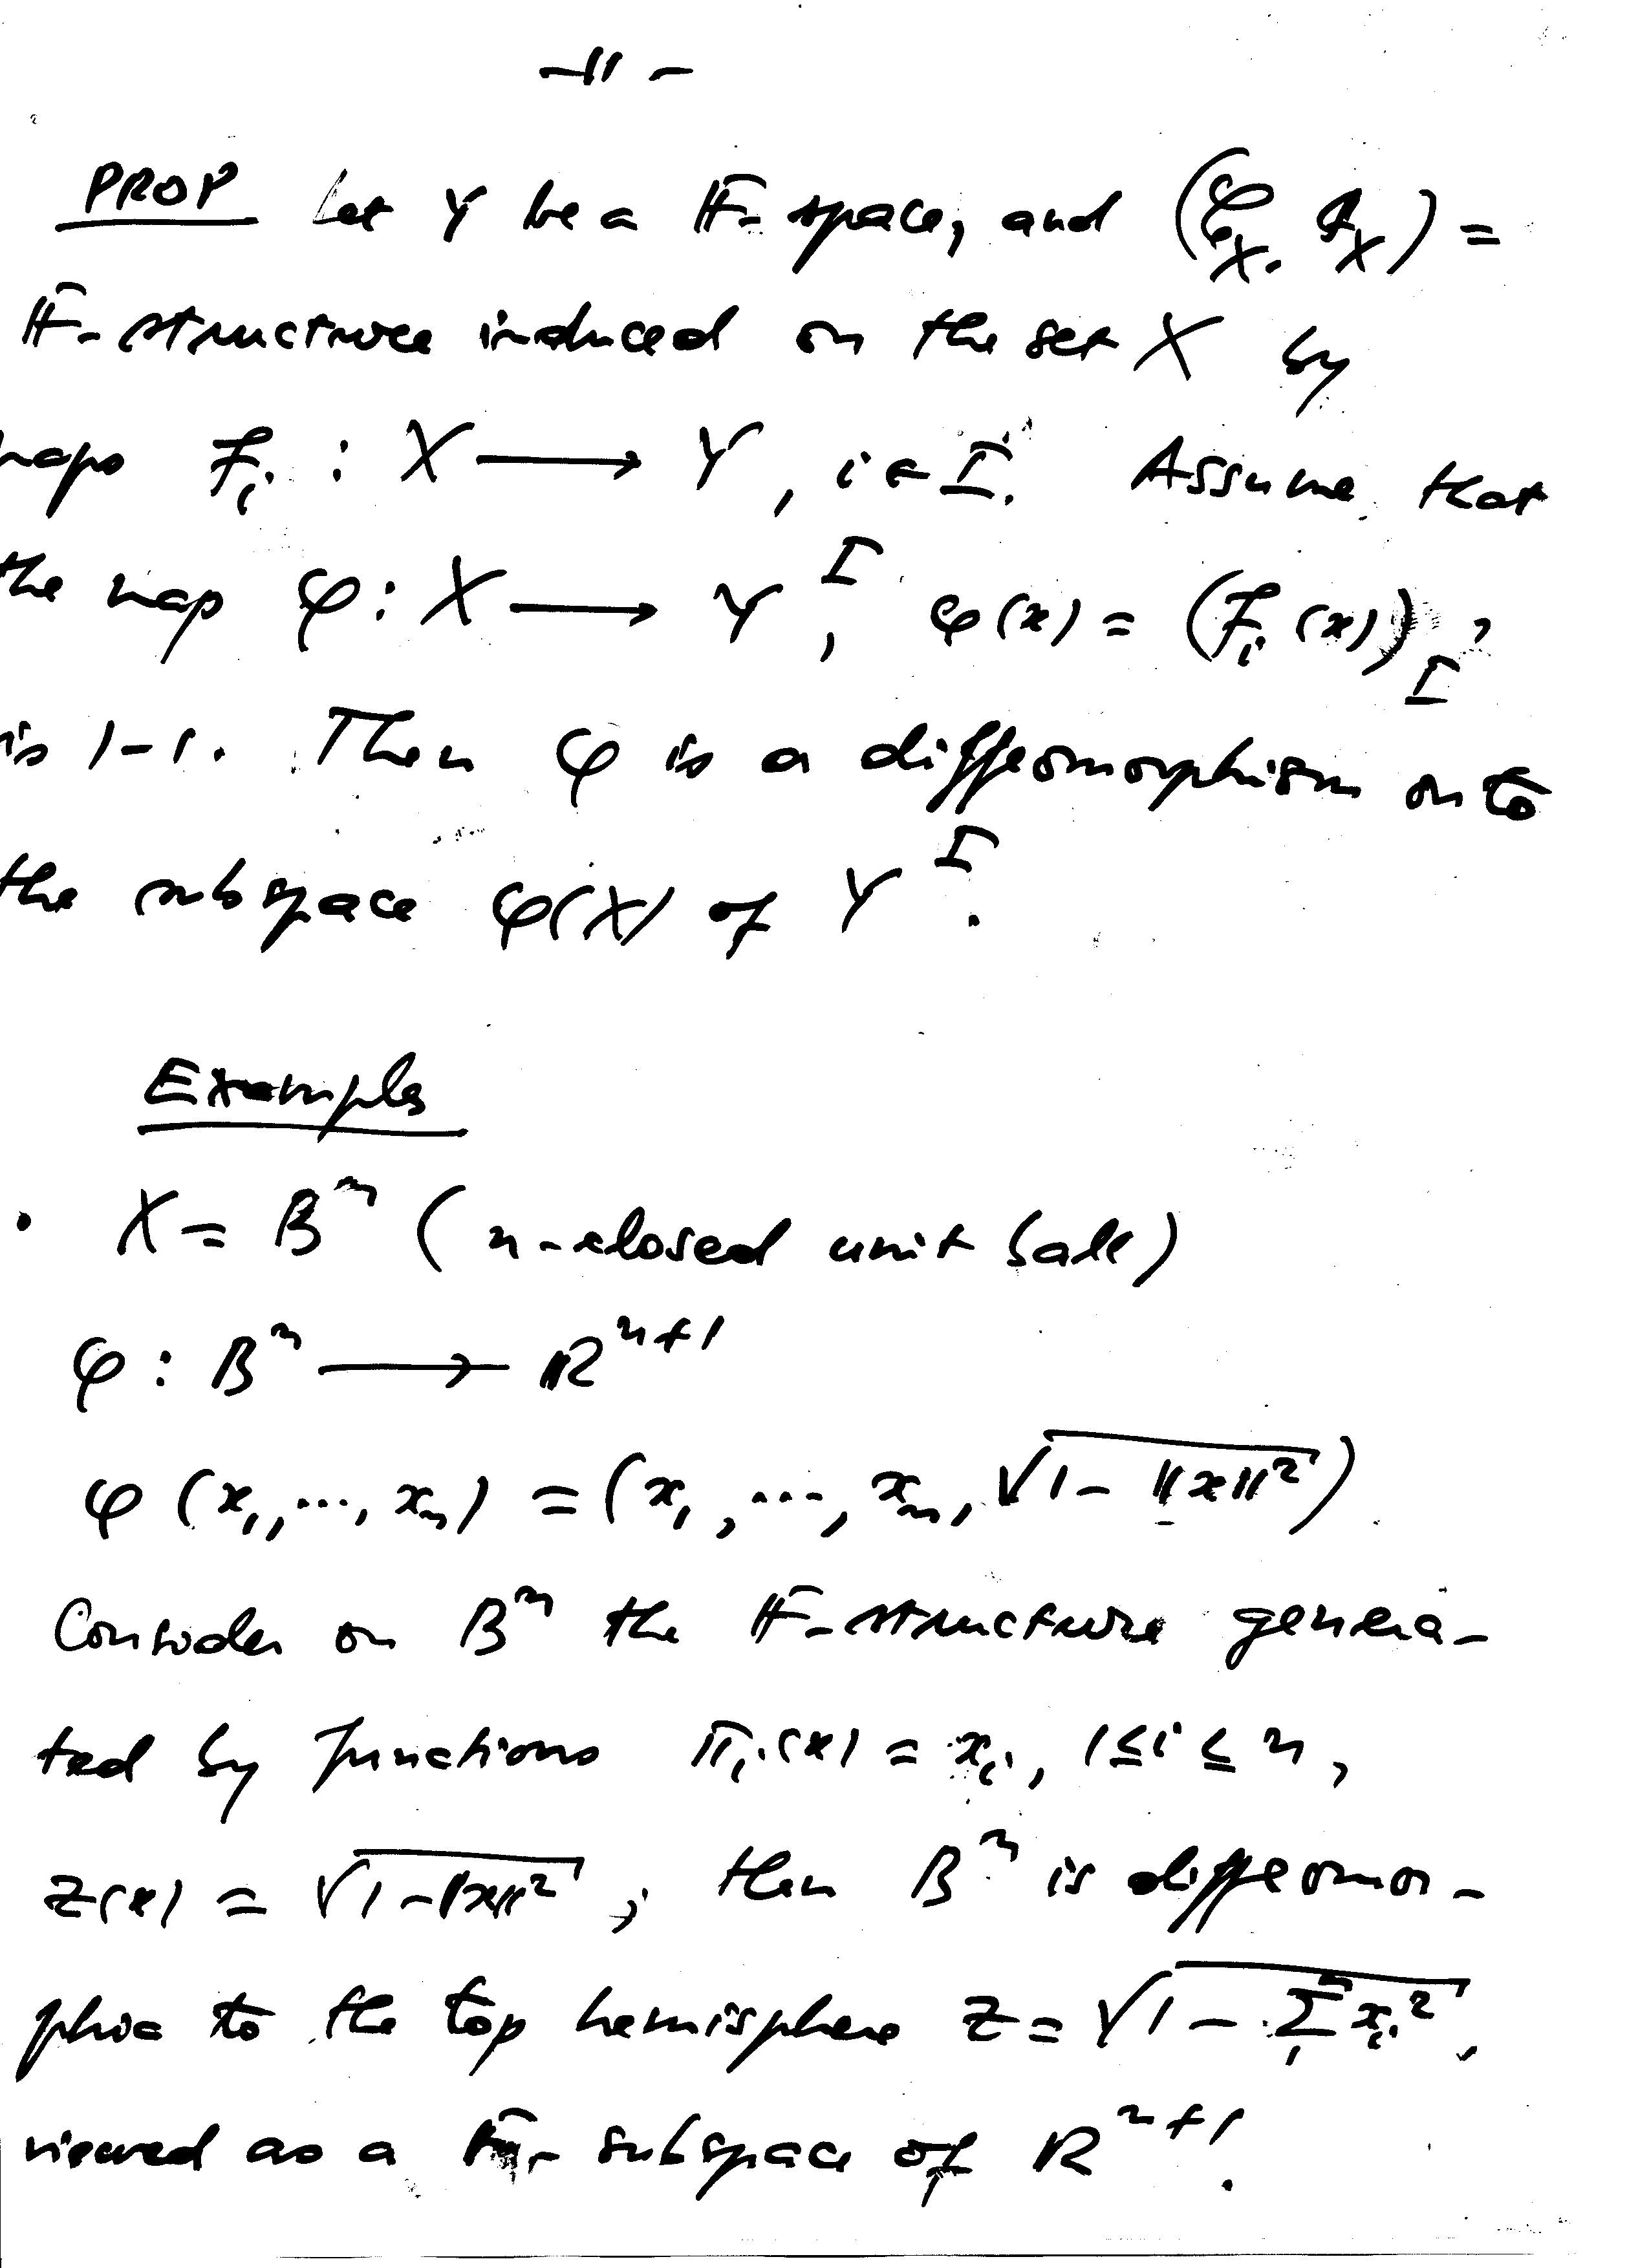 -11-
PROP Let Y be a F-space, and (𝒞_X, ℱ_X) =
F-structure induced on the set X by
maps F_i : X ⟶ Y, i ∈ I. Assume that
the map φ : X ⟶ Y^I, φ(x) = (F_i(x))_I,
is 1-1. Then φ is a diffeomorphism onto
the subspace φ(X) of Y^I.
Examples
• X = B^n (n-closed unit ball)
φ : B^n ⟶ ℝ^{n+1}
φ(x_1, ..., x_n) = (x_1, ..., x_n, √(1-‖x‖²))
Consider on B^n the F-structure genera-
ted by functions π_i(x) = x_i, 1≤i≤n,
z(x) = √(1-‖x‖²); then B^n is diffeomor-
phic to the top hemisphere z = √(1 - Σ_1^n x_i²),
viewed as a F-subspace of ℝ^{n+1}.